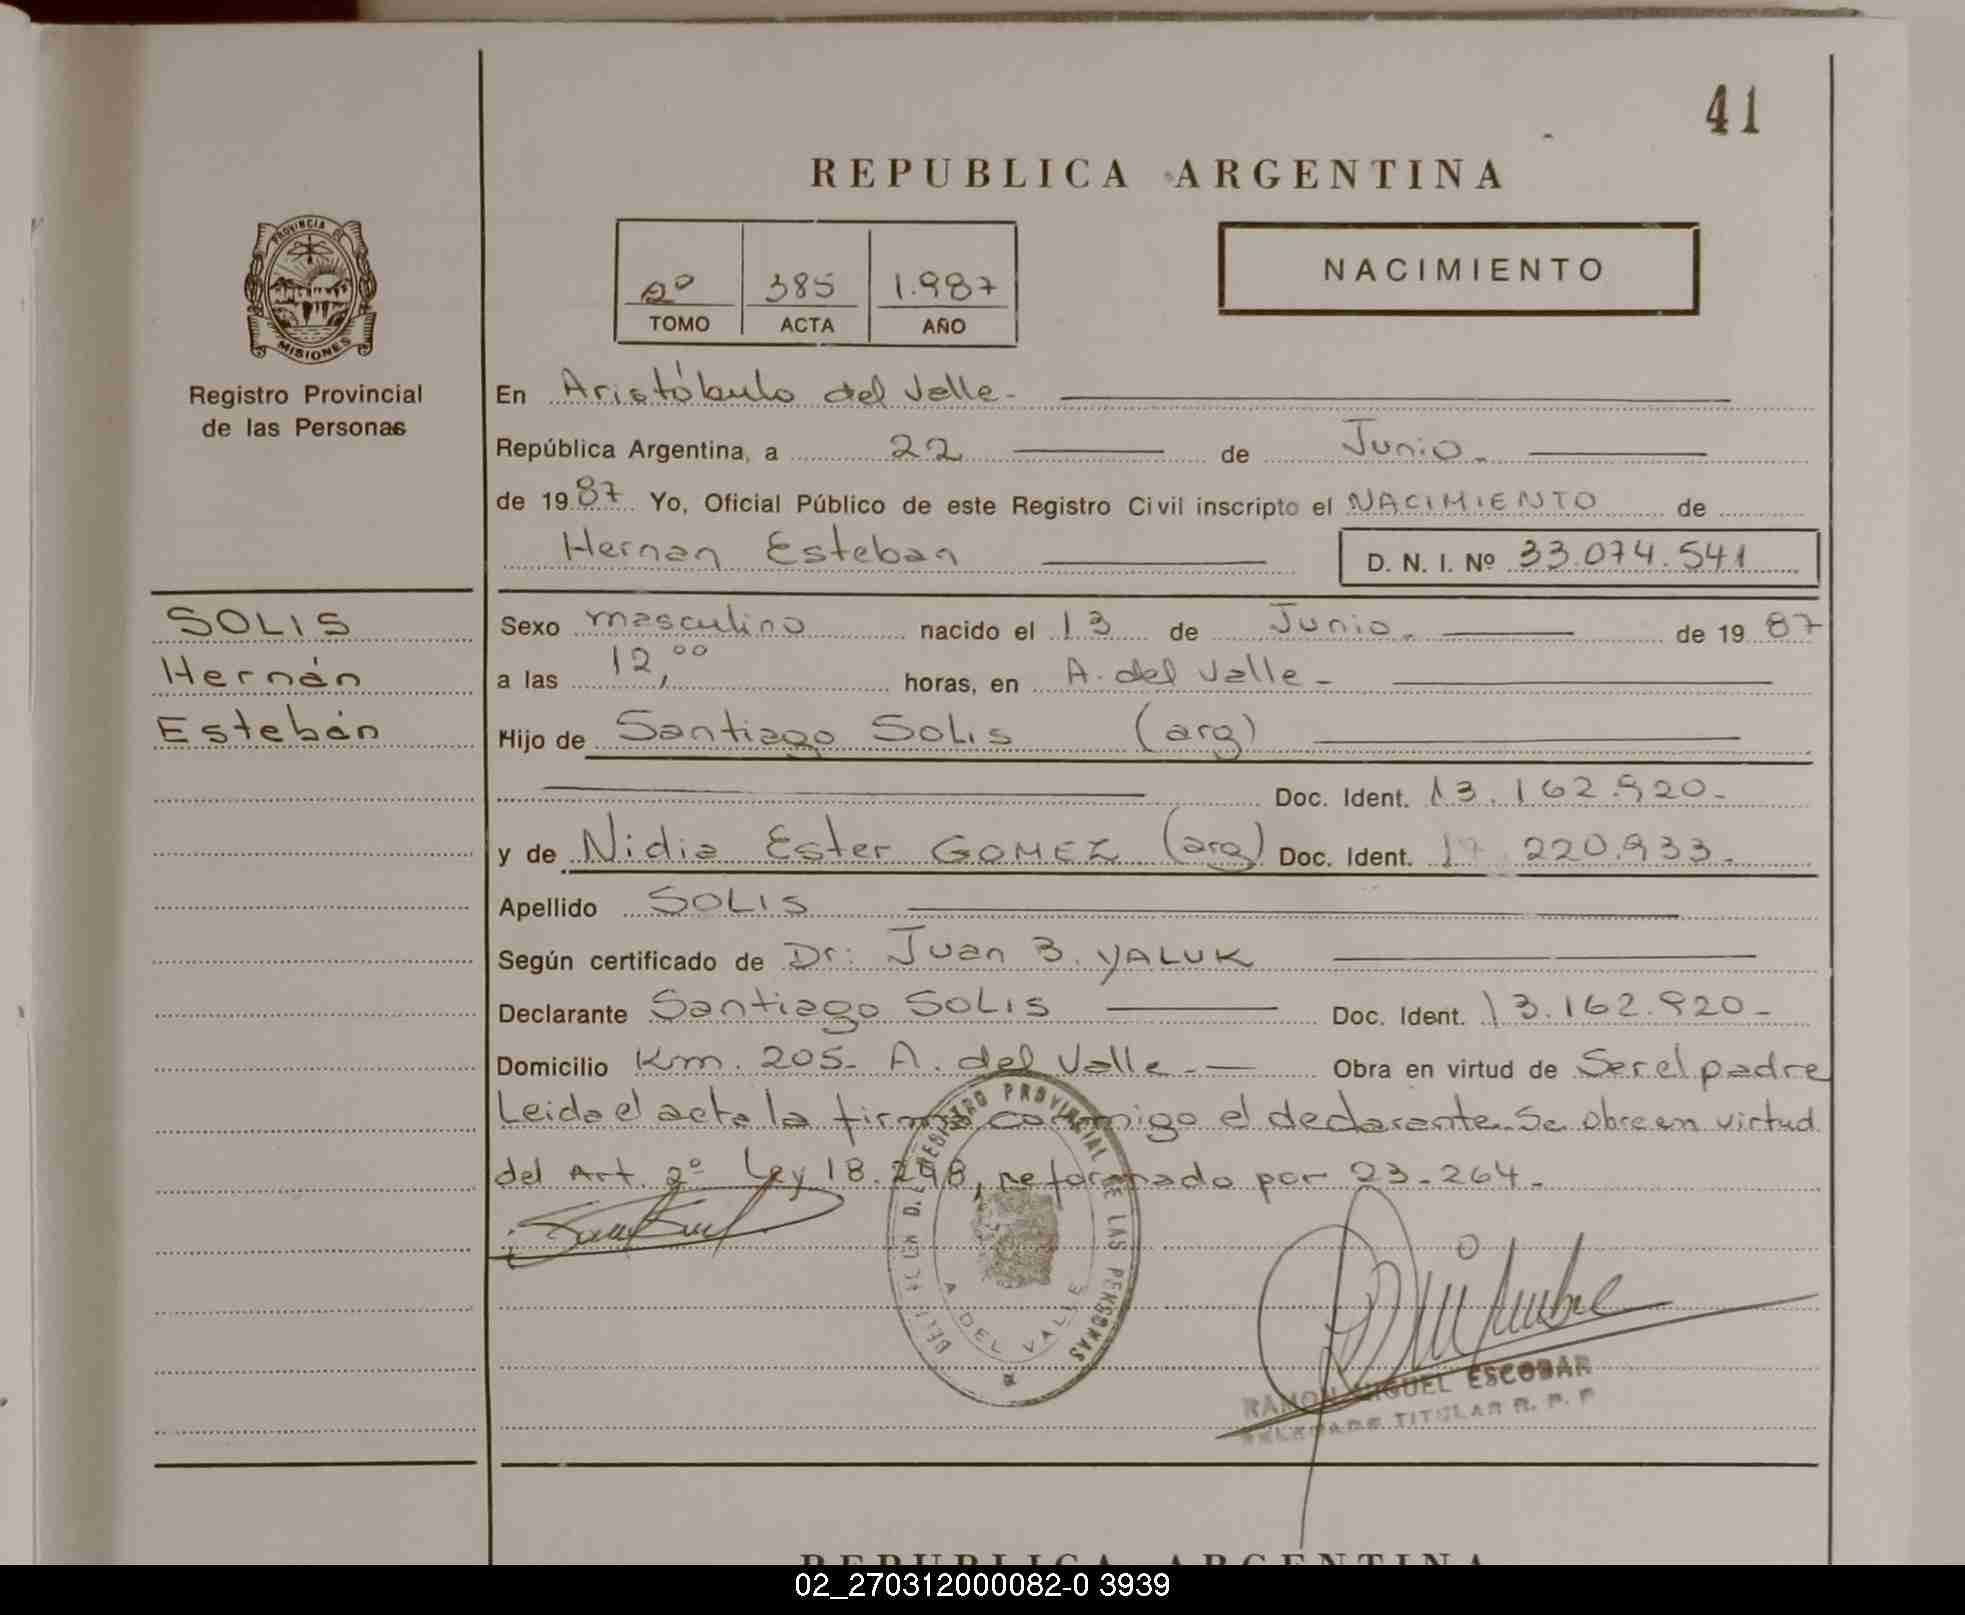 41
REPUBLICA ARGENTINA
2º 385 1.987
TOMO ACTA AÑO
NACIMIENTO
PROVINCIA DE
MISIONES
Registro Provincial
de las Personas
En Aristóbulo del Valle-
República Argentina, a 22 de Junio.
de 1987 Yo, Oficial Público de este Registro Civil inscripto el NACIMIENTO de
Hernan Esteban D. N. I. Nº 33.074.541
SOLIS
Hernán
Estebán
Sexo masculino nacido el 13 de Junio. de 1987
a las 12,00 horas, en A. del Valle-
Hijo de Santiago Solis (arg)
Doc. Ident. 13.162.920-
y de Nidia Ester GOMEZ (arg) Doc. Ident. 17.220.933.
Apellido SOLIS
Según certificado de Dr: Juan B. YALUK
Declarante Santiago SOLIS Doc. Ident. 13.162.920-
Domicilio Km. 205- A. del Valle- Obra en virtud de Ser el padre
Leida el acta la firma conmigo el declarante. Se obra en virtud
del Art. 2º Ley 18.248, reformado por 23.264.-
REGISTRO PROVINCIAL DE LAS PERSONAS
A DEL VALLE
RAMON MIGUEL ESCOBAR
DELEGADO TITULAR R. P. P
REPUBLICA ARGENTINA
02_270312000082-0 3939